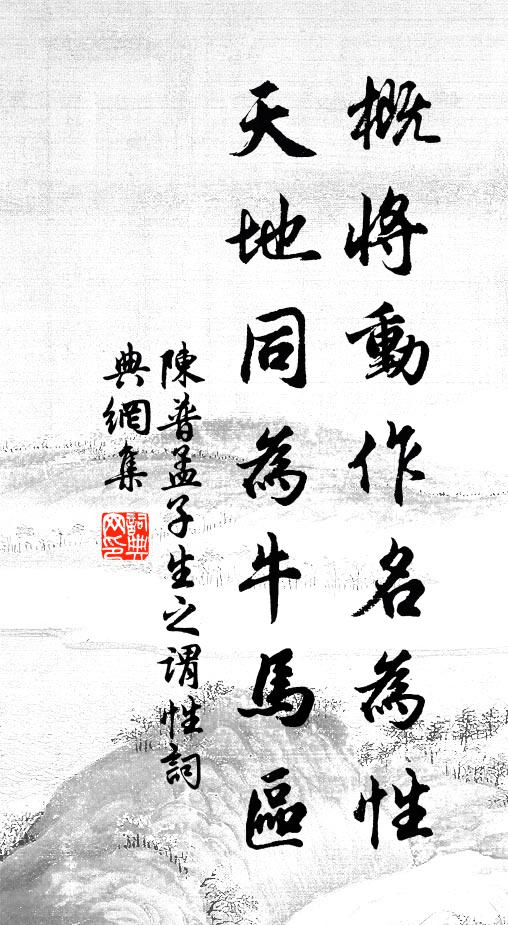 概將動作名為性
天地同為牛馬區
陳普孟子生之謂性詞
典網集
詞典
网印